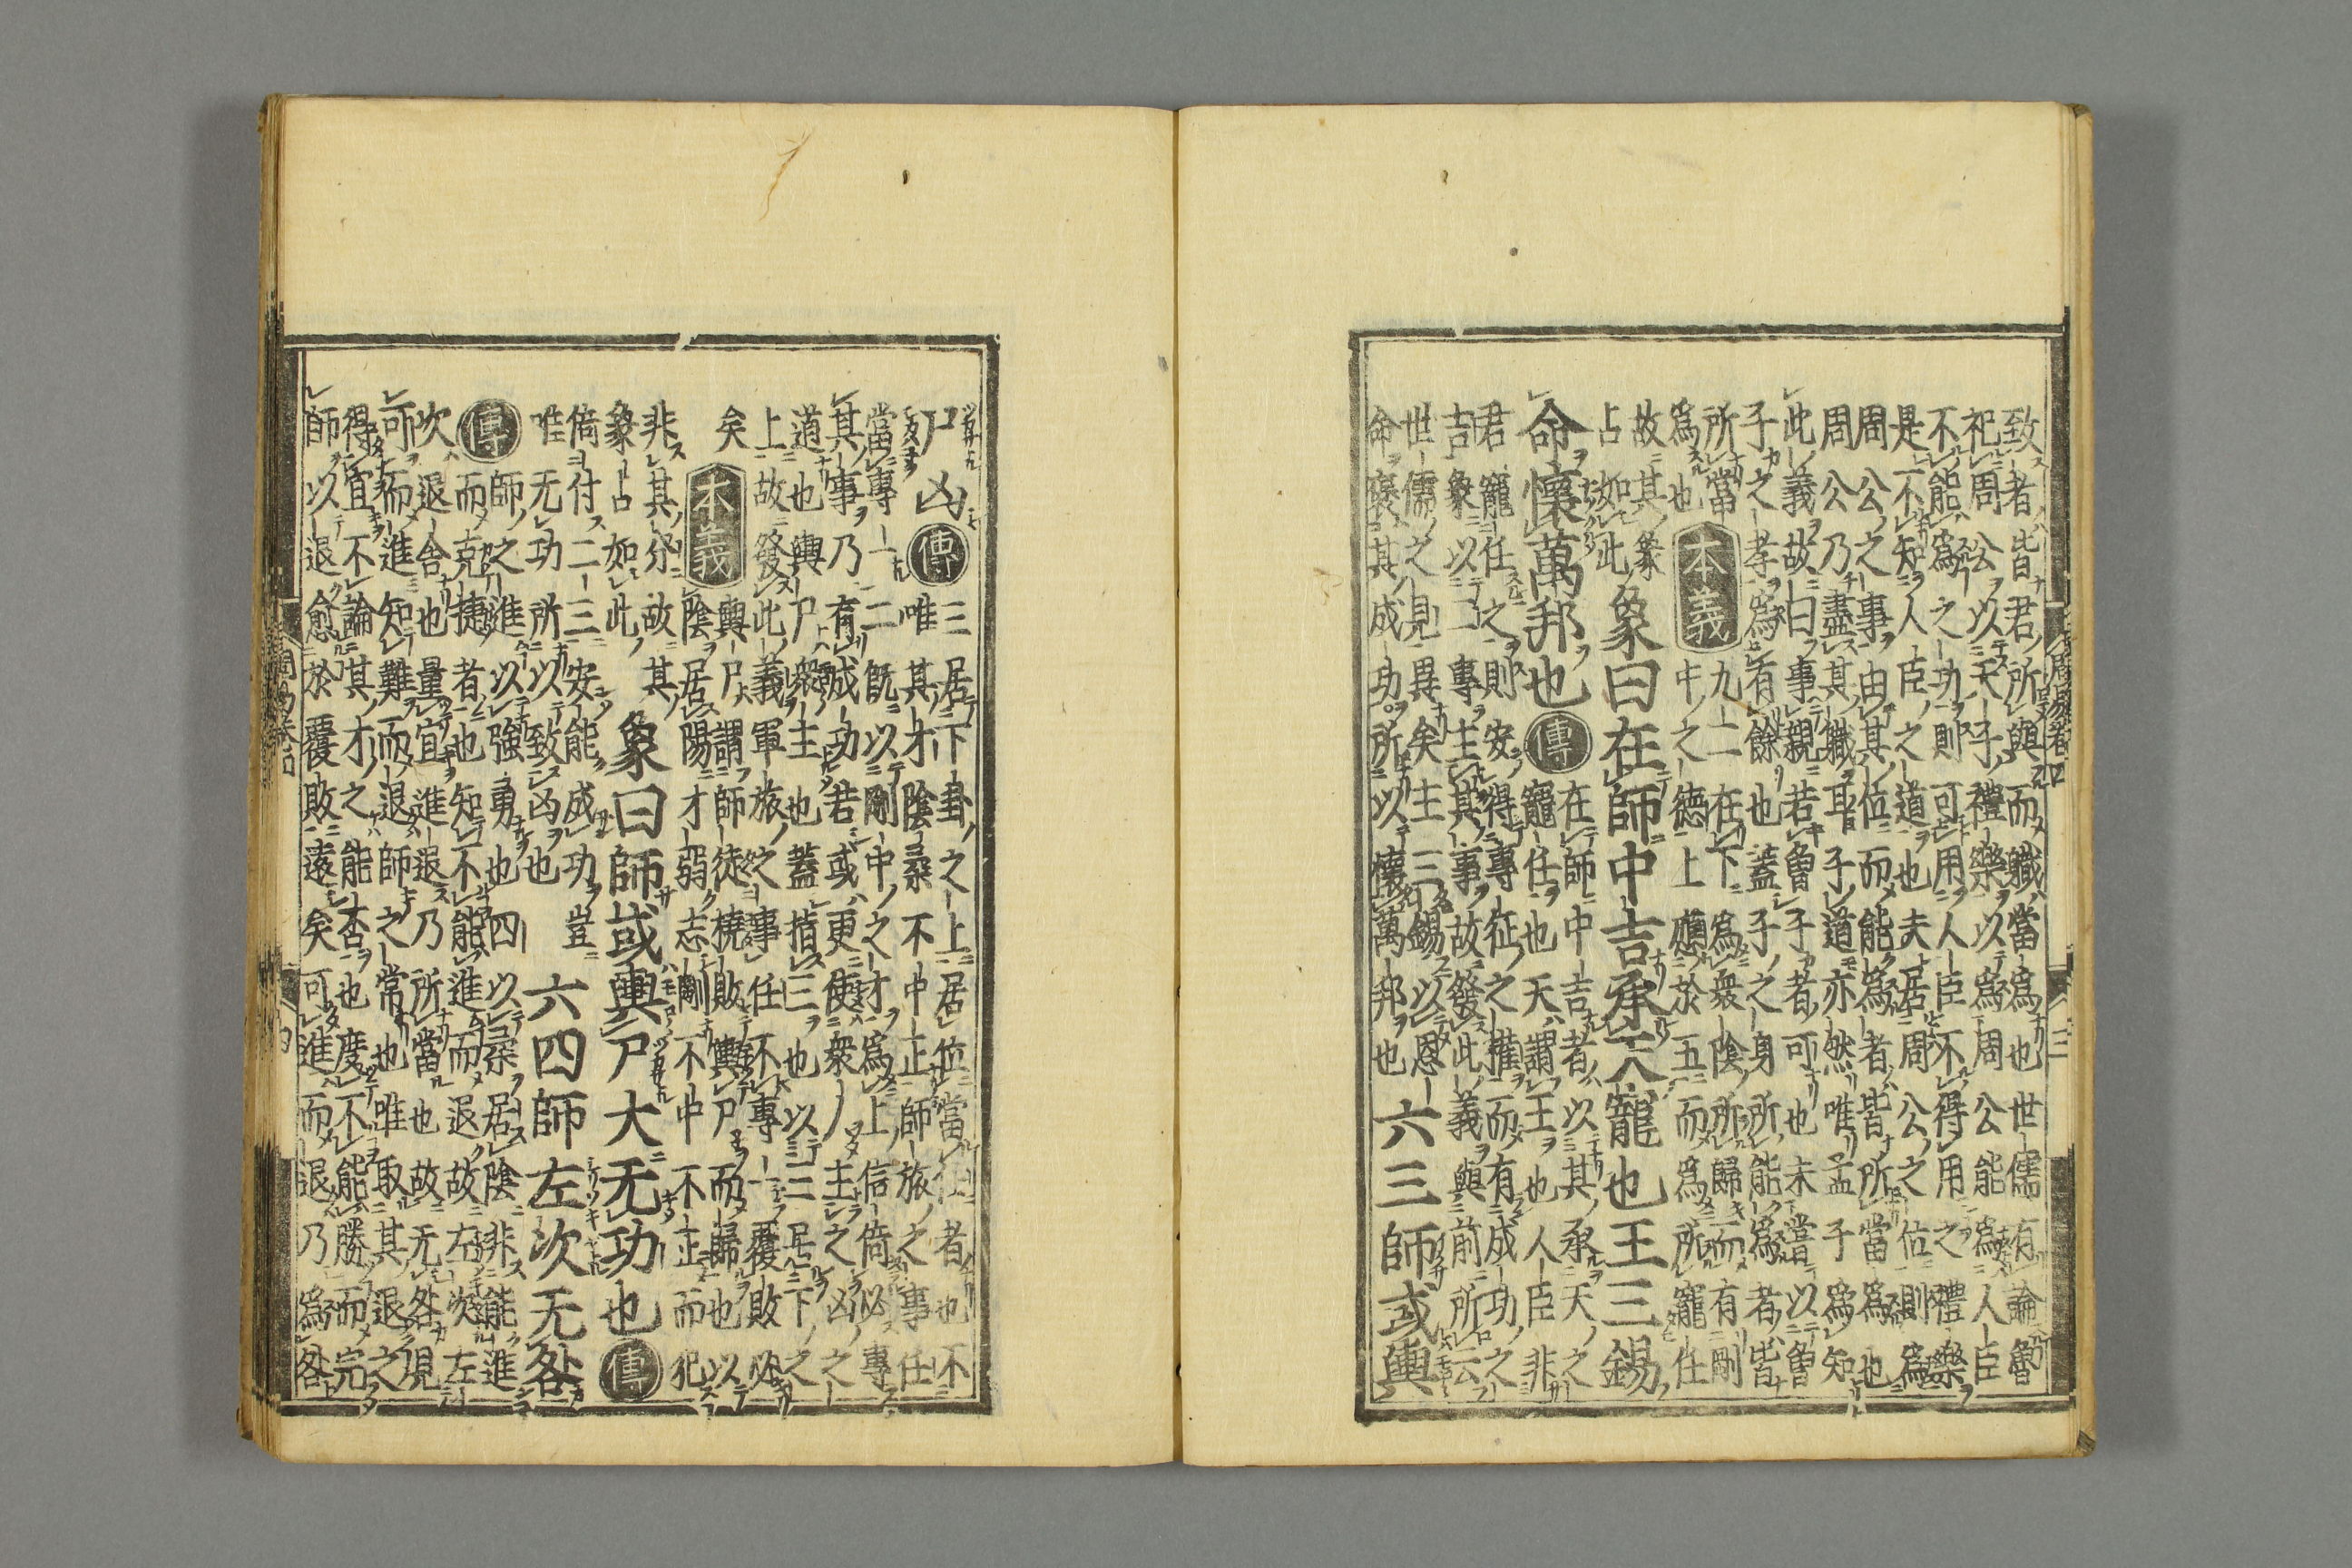 致者皆君所與而職當爲也世儒有論魯
祀周公以天子禮樂以爲周公能爲人臣
不能爲之功則可用人臣不得用之禮樂
是不知人臣之道也夫居周公之位則爲
周公之事由其位而能爲者皆所當爲也
周公乃盡其職耳子道亦然唯孟子爲知
此義故曰事親若曾子者可也未嘗以曾
子之孝爲有餘也蓋子之身所能爲者皆
所當
爲也
本義
九二在下爲衆陰所歸而有剛
中之德上應於五而爲所寵任
故其象
占如此
象曰在師中吉承天寵也王三錫
命懷萬邦也
傳
在師中吉者以其承天之
寵任也天謂王也人臣非
君寵任之則安得專征之權而有成功之
吉象以二專主其事故發此義與前所云
世儒之見異矣王三錫以恩
命褒其成功所以懷萬邦也
六三師或輿
尸凶
傳
三居下卦之上居位當任者也不
唯其才陰柔不中正師旅之事任
當專一二既以剛中之才爲上信倚必專
其事乃有成功若或更使衆人主之凶之
道也輿尸衆主也蓋指三也以二居下之
上故發此義軍旅之事任不專一覆敗必
矣
本義
輿尸謂師徒撓敗輿尸而歸也以
陰居陽才弱志剛不中不正而犯
非其分故其
象占如此
象曰師或輿尸大无功也
傳
倚付二三安能成功豈
唯无功所以致凶也
六四師左次无咎
傳
師之進以強勇也四以柔居陰非能進
而克捷者也知不能進而退故左次左
次退舍也量宜進退乃所當也故无咎見
可而進知難而退師之常也唯取其退之
得宜不論其才之能否也度不能勝而完
師以退愈於覆敗遠矣可進而退乃爲咎